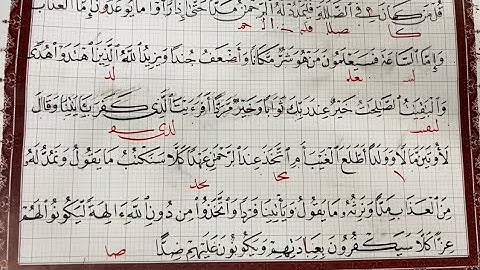 قُلْ مَن كَانَ فِي الضَّلَٰلَةِ فَلْيَمْدُدْ لَهُ الرَّحْمَٰنُ مَدًّا حَتَّىٰ إِذَا رَأَوْا مَا يُوعَدُونَ إِمَّا الْعَذَابَ
وَإِمَّا السَّاعَةَ فَسَيَعْلَمُونَ مَنْ هُوَ شَرٌّ مَّكَانًا وَأَضْعَفُ جُندًا وَيَزِيدُ اللَّهُ الَّذِينَ اهْتَدَوْا هُدًى
وَالْبَٰقِيَٰتُ الصَّٰلِحَٰتُ خَيْرٌ عِندَ رَبِّكَ ثَوَابًا وَخَيْرٌ مَّرَدًّا أَفَرَءَيْتَ الَّذِي كَفَرَ بِـَٔايَٰتِنَا وَقَالَ
لَأُوتَيَنَّ مَالًا وَوَلَدًا أَطَّلَعَ الْغَيْبَ أَمِ اتَّخَذَ عِندَ الرَّحْمَٰنِ عَهْدًا كَلَّا سَنَكْتُبُ مَا يَقُولُ وَنَمُدُّ لَهُ
مِنَ الْعَذَابِ مَدًّا وَنَرِثُهُ مَا يَقُولُ وَيَأْتِينَا فَرْدًا وَاتَّخَذُوا مِن دُونِ اللَّهِ ءَالِهَةً لِّيَكُونُوا لَهُمْ
عِزًّا كَلَّا سَيَكْفُرُونَ بِعِبَادَتِهِمْ وَيَكُونُونَ عَلَيْهِمْ ضِدًّا